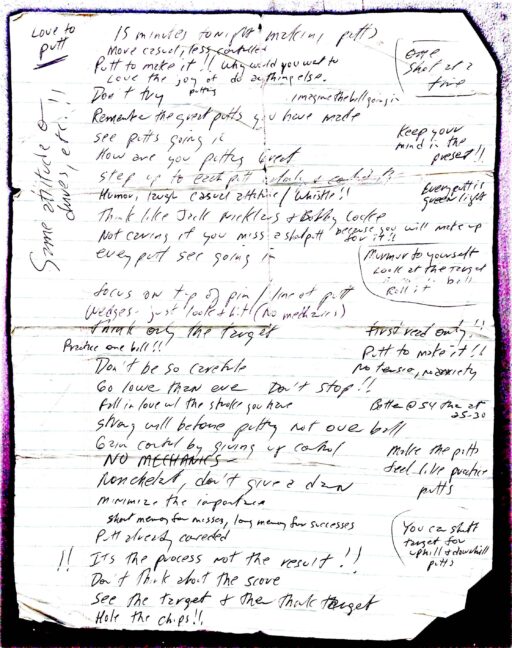 Love to
putt
15 minutes tonight making putts
Move casual, less controlled
Putt to make it!! Why would you want to
Love the joy of do anything else.
putting
Don't try
imagine the ball going in
Remember the great putts you have made
see putts going in
How are you putting Great
step up to each putt
Humor, laugh casual attitude / Whistle!!
Think like Jack Nicklaus & Bobby Locke
Not caring if you miss a short putt because you will make up
for it!!
every putt see going in
One
Shot at a
time
Keep your
mind in the
present!!
Every putt is
green light
Murmur to yourself
Look at the target
ball
Roll it
Same attitude on
drives, etc..!!
focus on tip of pin / line of putt
Wedges - just look & hit (No mechanics)
Think only the target
Practice one ball!!
First read only!!
Putt to make it!!
No tension, no anxiety
Don't be so careful
Go lower than ever Don't stop!!
Fall in love w/ the stroke you have
Better @ 54 than at
25-30
strong will before putting not over ball
Gain control by giving up control
NO MECHANICS
Nonchalant, don't give a damn
Make the putts
feel like practice
putts
minimize the importance
short memory for misses, long memory for successes
Putt already conceded
You can shift
target for
uphill & downhill
putts
!! Its the process not the result!!
Don't think about the score
See the target & then think target
Hole the chips!!